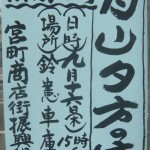 月山夕方の
日時九月十六日(祭)15時
場所鈴憲車庫
宮町商店街振興